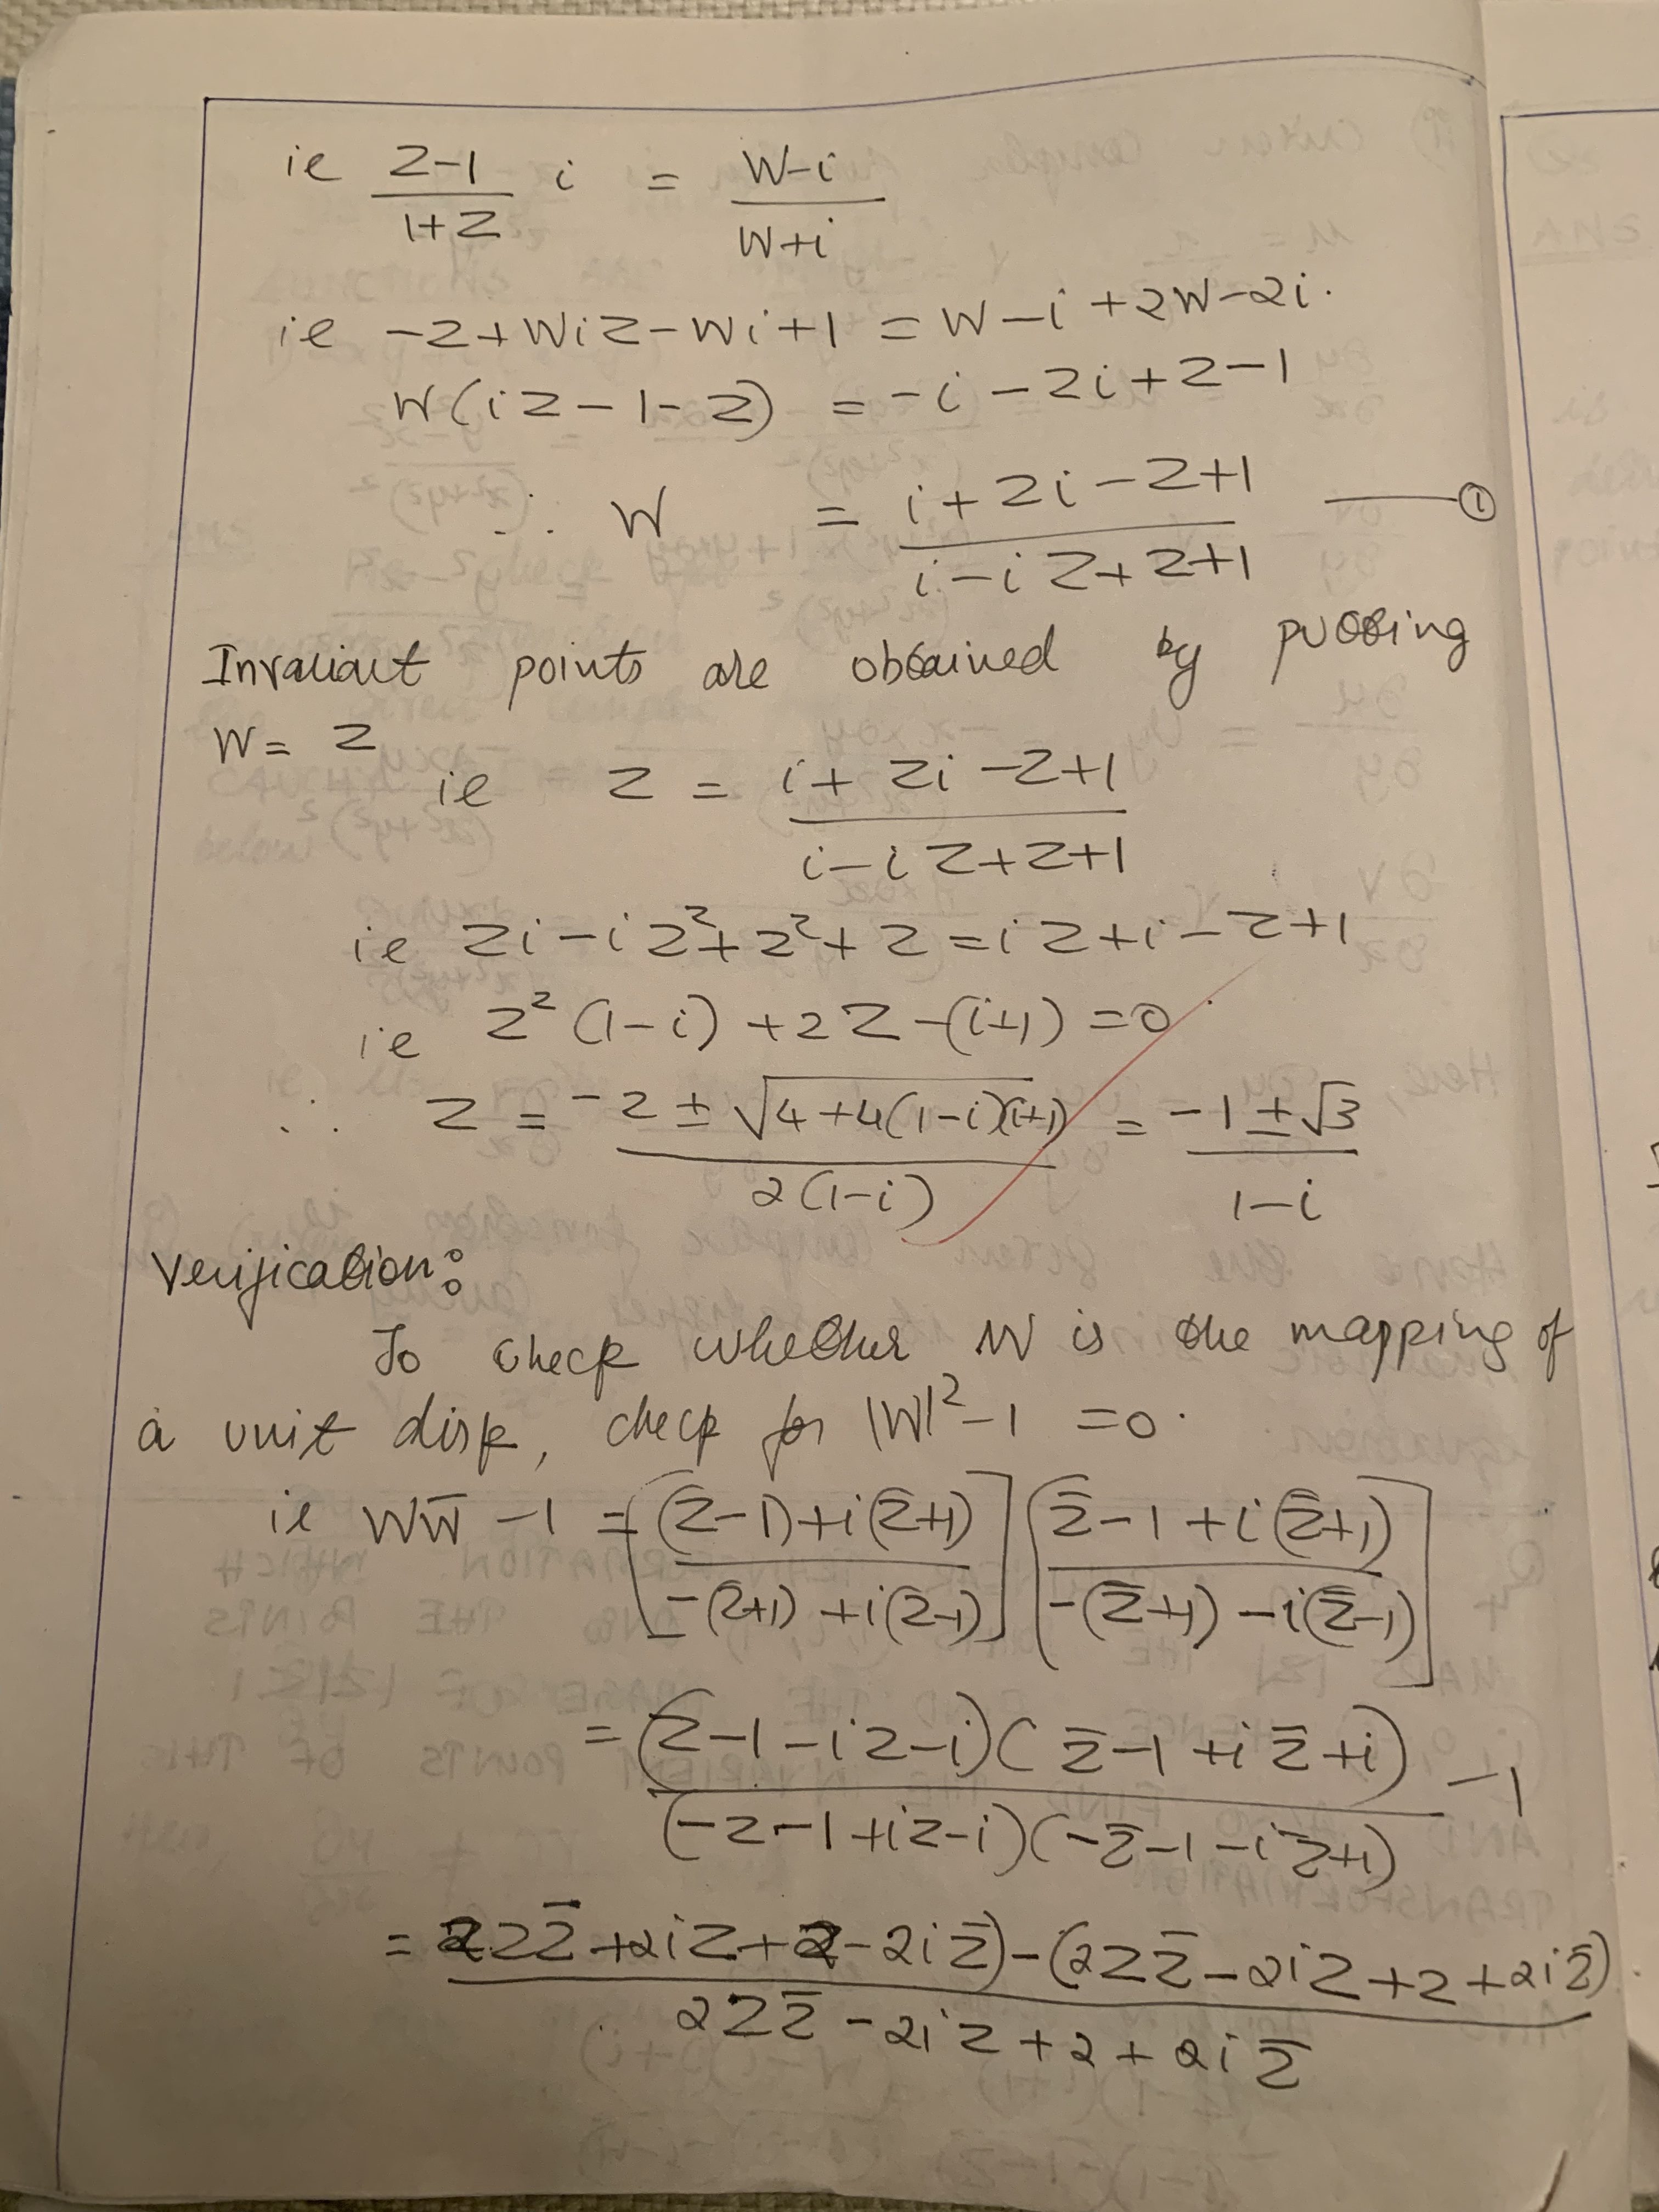 ie (z-1)/(1+z) i = (w-i)/(w+i)
ie -z+wiz-wi+1 = w-i+zw-zi.
w(iz-1-z) = -i-zi+z-1
∴ w = (i+zi-z+1)/(i-iz+z+1) —— ①
Invariant points are obtained by putting
w = z
ie z = (i+zi-z+1)/(i-iz+z+1)
ie zi-iz²+z²+z = iz+i-z+1
ie z²(1-i)+2z-(i+1) = 0.
∴ z = (-2±√4+4(1-i)(i+1))/(2(1-i)) = (-1±√3)/(1-i)
Verification:
To check whether W is the mapping of
a unit disk, check for |W|²-1 = 0.
ie Ww̄ -1 = [((z-1)+i(z+1))/(-(z+1)+i(z-1))] [(z̄-1+i(z̄+1))/(-(z̄+1)-i(z̄-1))]
= ((z-1-iz-i)(z̄-1+iz̄+i))/((-z-1+iz-i)(-z̄-1-iz̄+1)) -1
= (2zz̄+2iz+2-2iz̄)-(2zz̄-2iz+2+2iz̄)/(2zz̄-2iz+2+2iz̄)